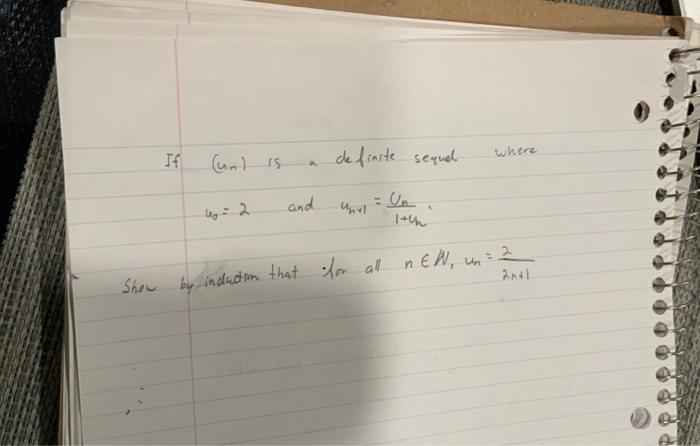 If (un) is a definite sequel where
u0 = 2 and un+1 = Un / 1+Un.
Show by induction that for all n ∈ N, un = 2 / 2n+1